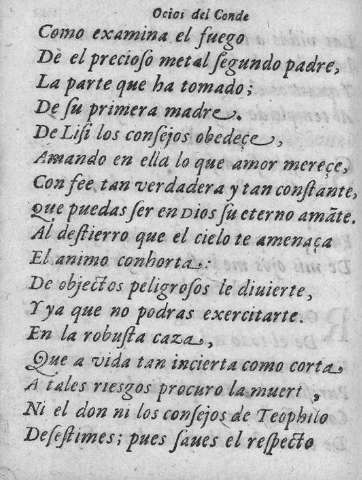 Ocios del Conde
Como examina el fuego
De el precioso metal segundo padre,
La parte que ha tomado;
De su primera madre.
De Lisi los consejos obedeçe,
Amando en ella lo que amor mereçe,
Con fee tan verdadera y tan constante,
Que puedas ser en Dios su eterno amãte.
Al destierro que el cielo te amenaça
El animo conhorta:
De objectos peligrosos le diuierte,
Y ya que no podras exercitarte.
En la robusta caza,
Que a vida tan incierta como corta
A tales riesgos procuro la muert,
Ni el don ni los consejos de Teophilo
Desestimes; pues saues el respecto